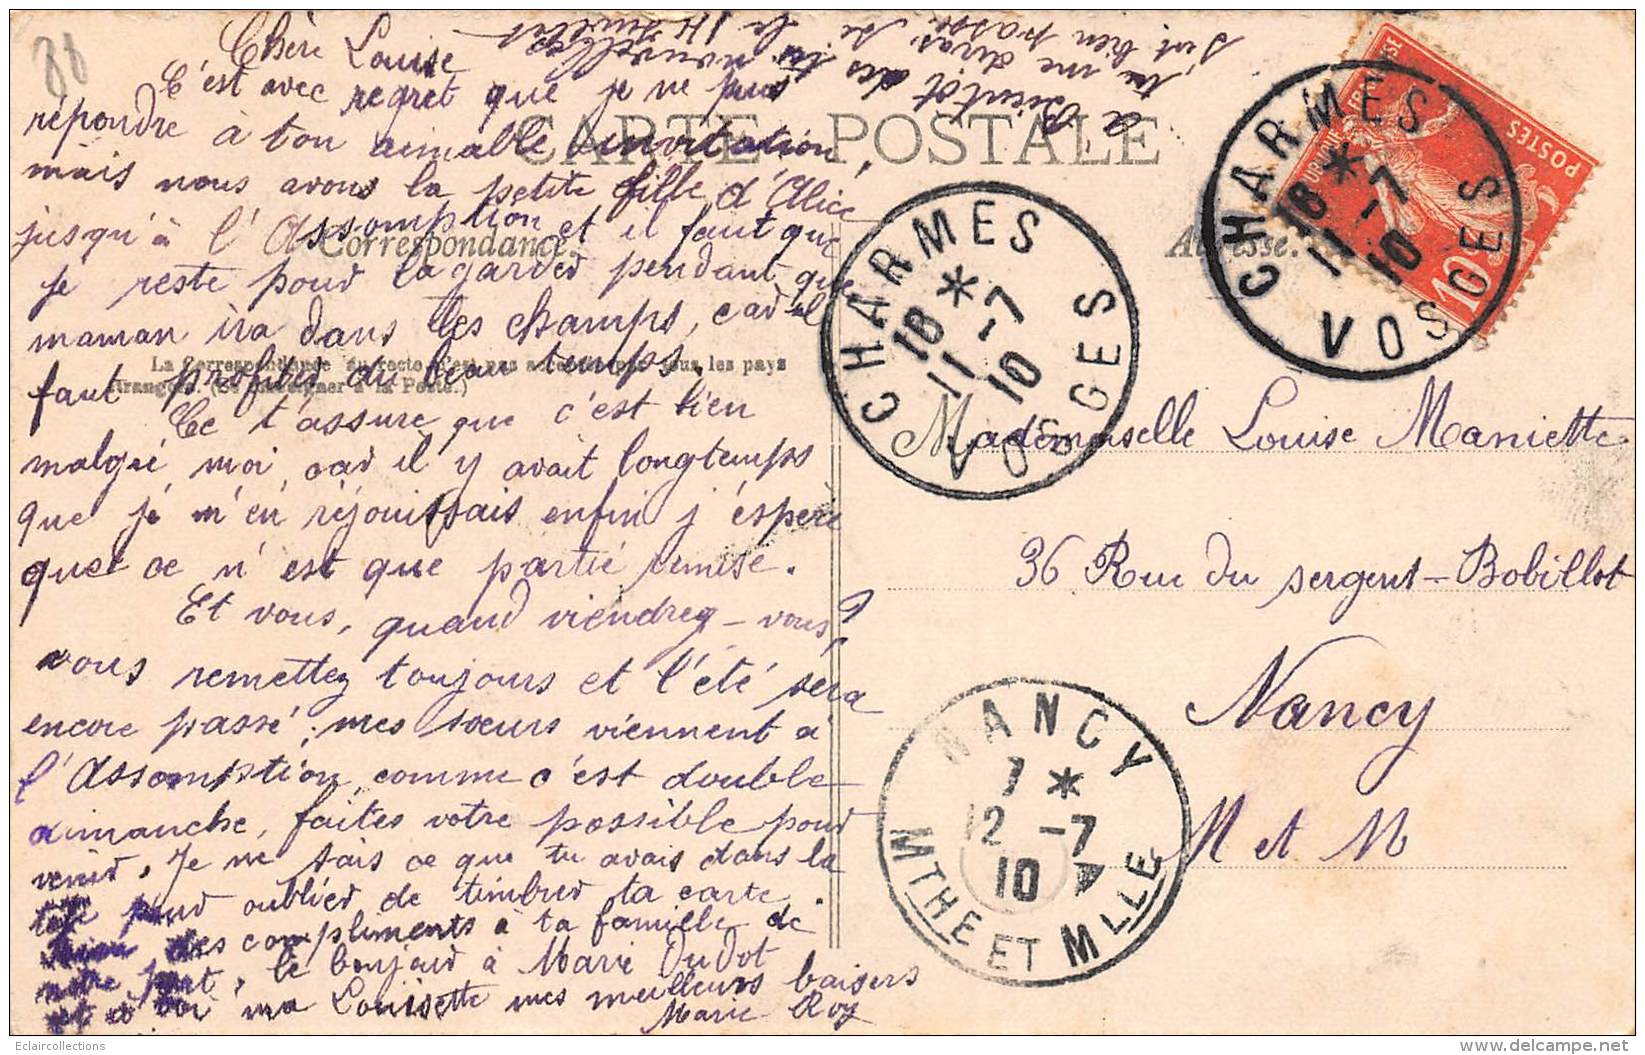 88
Chère Louise
C'est avec regret que je ne puis
répondre à ton aimable invitation,
mais nous avons la petite fille d'Alice
jusqu'à l'Assomption et il faut que
je reste pour la garder pendant que
maman ira dans les champs, car il
faut profiter du beau temps,
Ce t'assure que c'est bien
malgré moi car il y avait longtemps
que je m'en réjouissais enfin j'espère
que ce n'est que partie remise.
Et vous, quand viendrez-vous?
vous remettez toujours et l'été sera
encore passé, mes sœurs viennent à
l'Assomption, comme c'est double
dimanche, faites votre possible pour
venir. Je ne sais ce que tu avais dans la
tête pour oublier de timbrer ta carte.
Bien des compliments à ta famille de
notre part, le bonjour à Marie Dudot
et à toi ma Louisette mes meilleurs baisers
Marie Roy
à Bientôt des tes nouvelles
tu me diras, si le 14
s'est bien passé
CARTE POSTALE
Correspondance.
Adresse.
La Correspondance au recto n'est pas acceptée par tous les pays
étrangers. (Se renseigner à la Poste.)
CHARMES
18 * 11 -7 10
VOSGES
CHARMES
18 * 11 -7 10
VOSGES
POSTES
10c
Mademoiselle Louise Maniette
36 Rue du sergent-Bobillot
Nancy
M et M
NANCY
7 *
12 -7
10
MTHE ET MLLE
Eclaircollections
www.delcampe.net